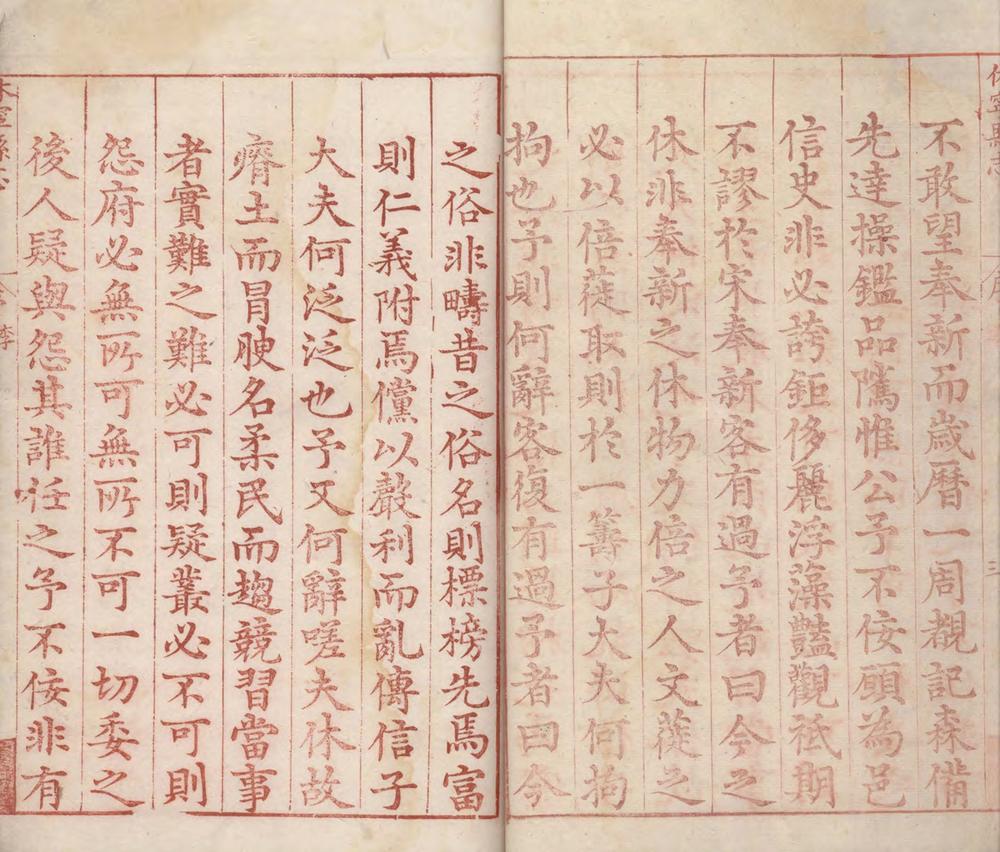 休寧縣志
不敢望奉新而歲曆一周覩記森備
先達操鑑品隲惟公予不佞願為邑
信史非必誇鉅侈麗浮藻豔觀祇期
不謬於宋奉新客有過予者曰今之
休非奉新之休物力倍之人文蓰之
必以倍蓰取則於一籌子大夫何拘
拘也予則何辭客復有過予者曰今
之俗非疇昔之俗名則標榜先焉富
則仁義附焉儻以聲利而亂傳信子
大夫何泛泛也予又何辭嗟夫休故
瘠土而冒腴名柔民而趨競習當事
者實難之難必可則疑叢必不可則
怨府必無所可無所不可一切委之
後人疑與怨其誰任之予不佞非有
休寧縣志